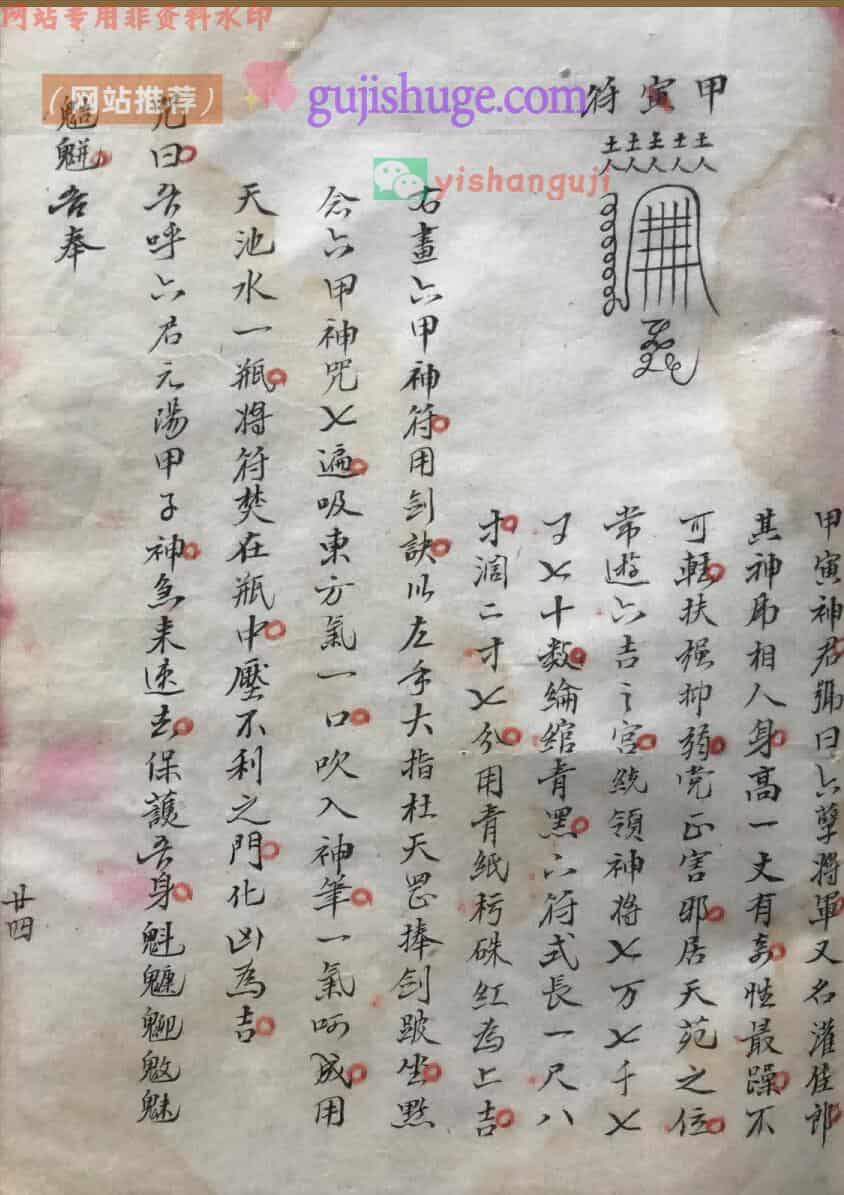 网站专用非资料水印
（网站推荐）
gujishuge.com
yishanguji
甲寅符
土土土土土
人人人人人
甲寅神君號曰六孽將軍又名灌佳郎
其神馬相人身高一丈有奇性最躁不
可輕扶强抑弱党正害邪居天苑之位
常遊六吉之宮統領神将乂万乂千乂
百乂十数綸綰青黑六符式長一尺八
寸濶二寸乂分用青紙硃紅為上吉
右畫六甲神符用剑訣以左手大指柱天罡捧剑跛坐點
念六甲神咒乂遍吸東方氣一口吹入神筆一氣呵成用
天池水一瓶将符焚在瓶中壓不利之門化凶為吉
咒曰吾呼六君元陽甲子神急来速去保護吾身魁
吾奉
廿四